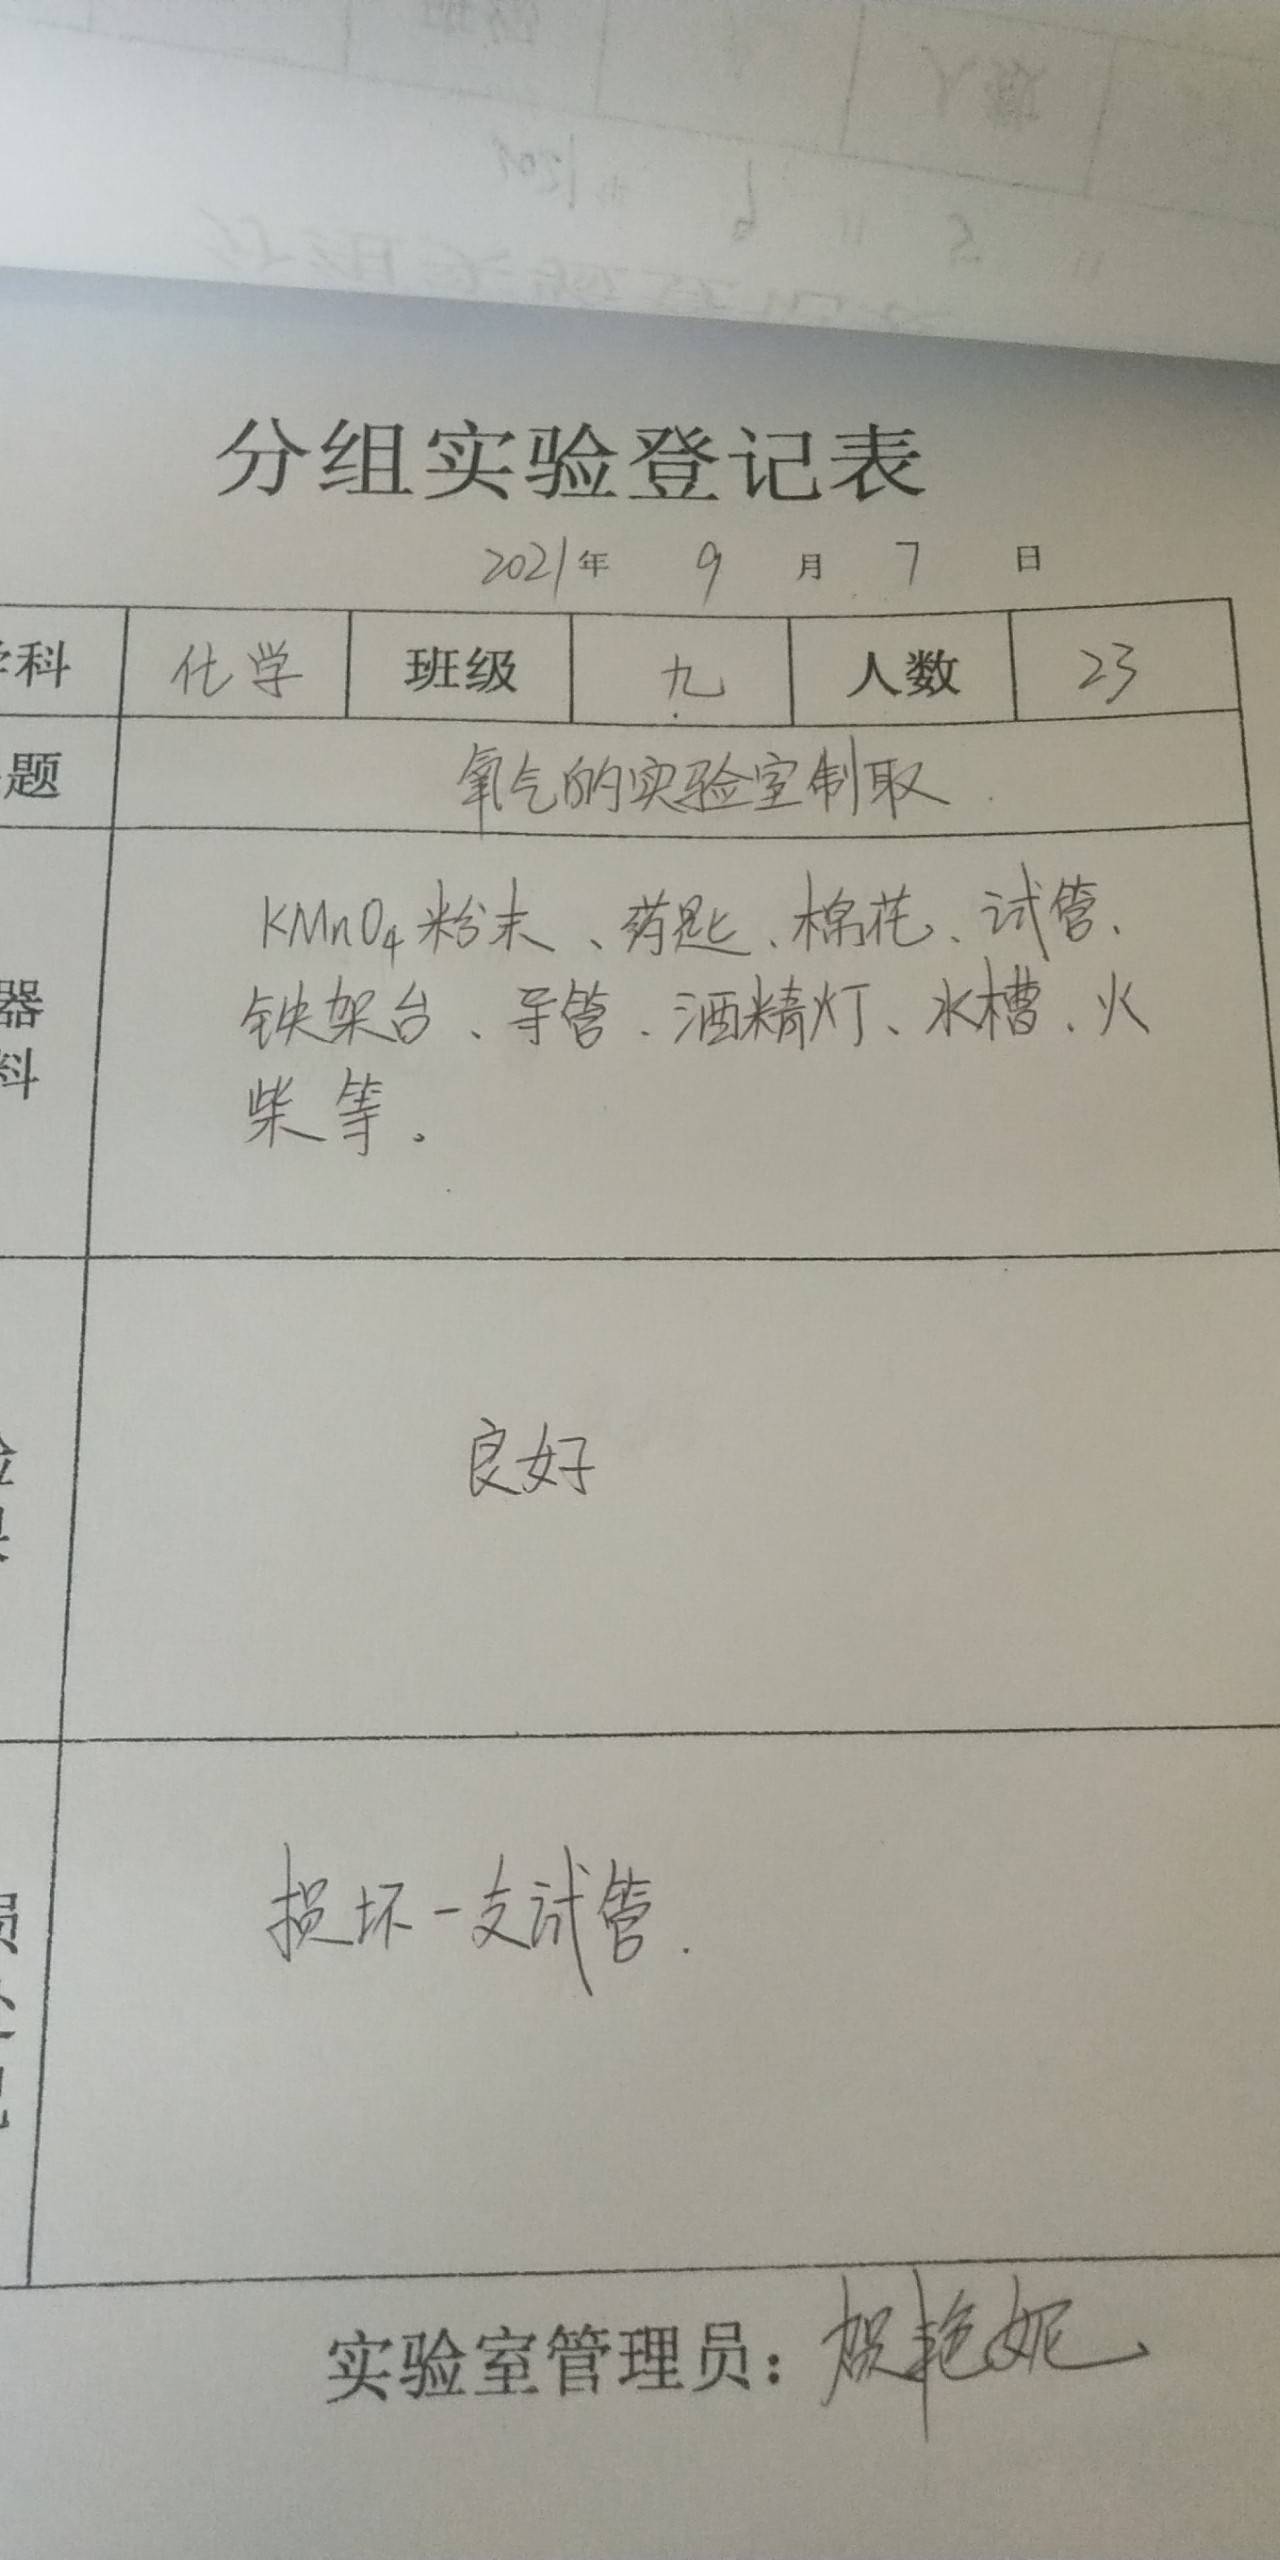 分组实验登记表
2021年 9 月 7 日
学科 化学 班级 九 人数 23
题 氧气的实验室制取
器
料
KMnO4粉末、药匙、棉花、试管、
铁架台、导管、酒精灯、水槽、火
柴等。
良好
损坏一支试管.
实验室管理员：贺艳妮